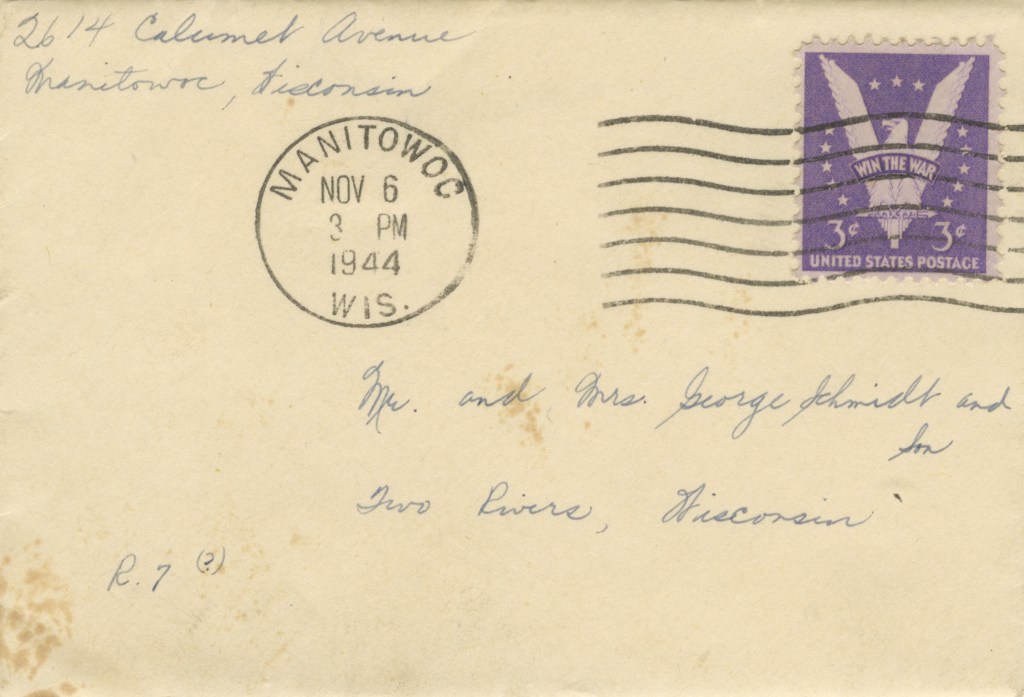 2614 Calumet Avenue
Manitowoc, Wisconsin
MANITOWOC
NOV 6
3 PM
1944
WIS.
WIN THE WAR
3¢ 3¢
UNITED STATES POSTAGE
Mr. and Mrs. George Schmidt and
Son
Two Rivers, Wisconsin
R. 7 (?)